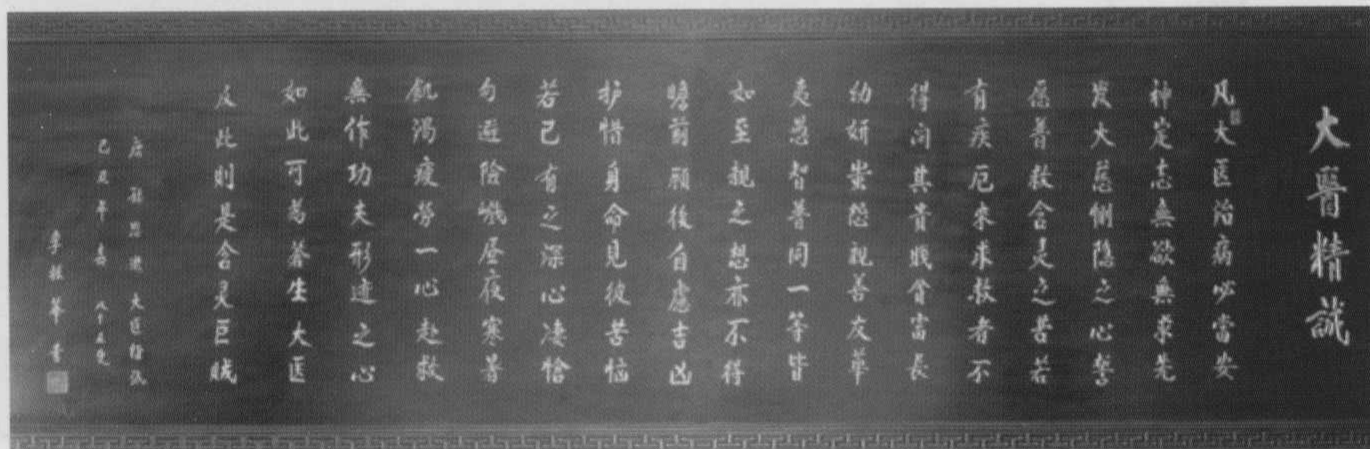 大醫精誠
凡大医治病必當安
神定志無欲無求先
发大慈惻隐之心誓
愿普救含灵之苦若
有疾厄来求救者不
得问其貴賎貧富長
幼妍蚩怨親善友華
夷愚智普同一等皆
如至親之想亦不得
瞻前顾後自慮吉凶
护惜身命見彼苦恼
若己有之深心凄愴
勿避险巇昼夜寒暑
飢渴疲勞一心赴救
無作功夫形迹之心
如此可為蒼生大医
反此則是含灵巨贼
唐 孫思邈 大医精诚
己丑年
李 華 書